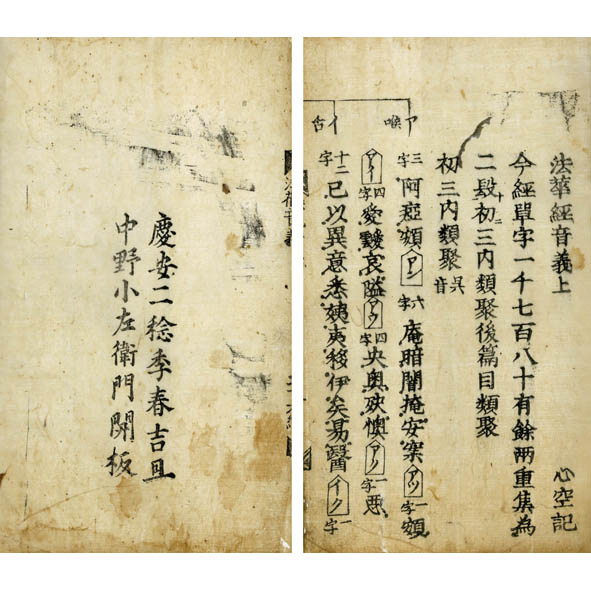 法華經音義上
心空記
今經單字一千七百八十有餘兩重集為
二段初三内類聚後篇目類聚
十二
初三内類聚呉音
ア喉
三字阿痙頞アン六字庵暗闇掩安案アツ一字頞
アイ四字愛靉哀隘アウ四字央奥殃懊アク一字悪
イ舌
十二字已以異意恚姨夷移伊矣易醫イク一字
慶安二稔季春吉旦
中野小左衛門開板
法華音義